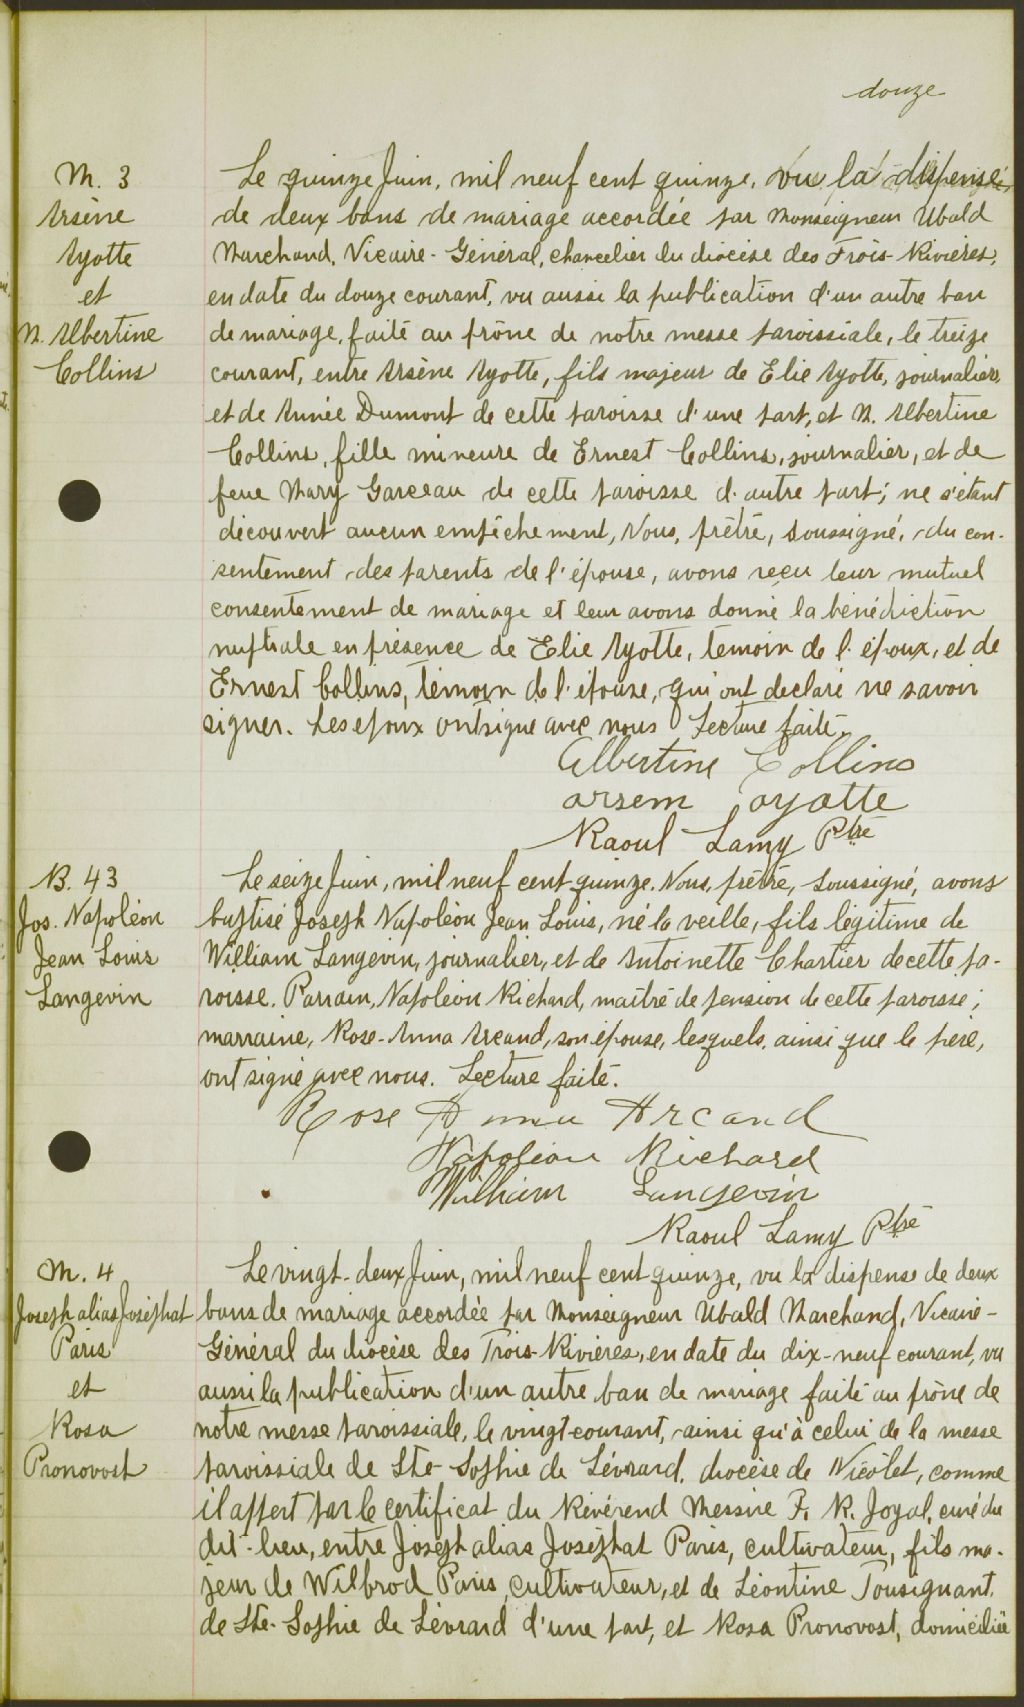 douze
M. 3
Arsène
Ayotte
et
M. Albertine
Collins
Le quinze Juin, mil neuf cent quinze, vu la dispense
de deux bans de mariage accordée par Monseigneur Ubald
Marchand, Vicaire-Général, chancelier du diocèse des Trois-Rivières,
en date du douze courant, vu aussi la publication d'un autre ban
de mariage, faite au prône de notre messe paroissiale, le treize
courant, entre Arsène Ayotte, fils majeur de Elie Ayotte, journalier,
et de Année Dumont de cette paroisse d'une part, et M. Albertine
Collins, fille mineure de Ernest Collins, journalier, et de
feue Mary Garceau de cette paroisse d'autre part; ne s'étant
découvert aucun empêchement, Nous, prêtre, soussigné, du con-
sentement des parents de l'épouse, avons reçu leur mutuel
consentement de mariage et leur avons donné la bénédiction
nuptiale en présence de Elie Ayotte, témoin de l'époux, et de
Ernest Collins, témoin de l'épouse, qui ont déclaré ne savoir
signer. Les époux ont signé avec nous Lecture faite.
Albertine Collins
arsem ayotte
Raoul Lamy Ptre
B. 43
Jos. Napoléon
Jean Louis
Langevin
Le seize Juin, mil neuf cent quinze. Nous, prêtre, soussigné, avons
baptisé Joseph Napoléon Jean Louis, né la veille, fils légitime de
William Langevin, journalier, et de Antoinette Chartier de cette pa-
roisse. Parrain, Napoléon Richard, maître de pension de cette paroisse;
marraine, Rose-Anna Arcand, son épouse, lesquels, ainsi que le père,
ont signé avec nous. Lecture faite.
Rose Anna Arcand
Napoléon Richard
William Langevin
Raoul Lamy Ptre
M. 4
Joseph alias Josephat
Paris
et
Rosa
Pronovost
Le vingt-deux Juin, mil neuf cent quinze, vu la dispense de deux
bans de mariage accordée par Monseigneur Ubald Marchand, Vicaire-
Général du diocèse des Trois-Rivières, en date du dix-neuf courant, vu
aussi la publication d'un autre ban de mariage faite au prône de
notre messe paroissiale, le vingt courant, ainsi qu'à celui de la messe
paroissiale de Ste-Sophie de Lévrard, diocèse de Nicolet, comme
il appert par le certificat du Révérend Messire F. R. Joyal, curé du
dit-lieu, entre Joseph alias Josephat Paris, cultivateur, fils ma-
jeur de Wilbrod Paris, cultivateur, et de Léontine Tousignant,
de Ste-Sophie de Lévrard d'une part, et Rosa Pronovost, domiciliée